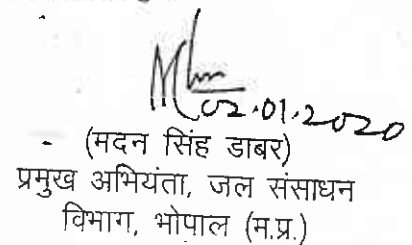 02.01.2020
(मदन सिंह डाबर)
प्रमुख अभियंता, जल संसाधन
विभाग, भोपाल (म.प्र.)